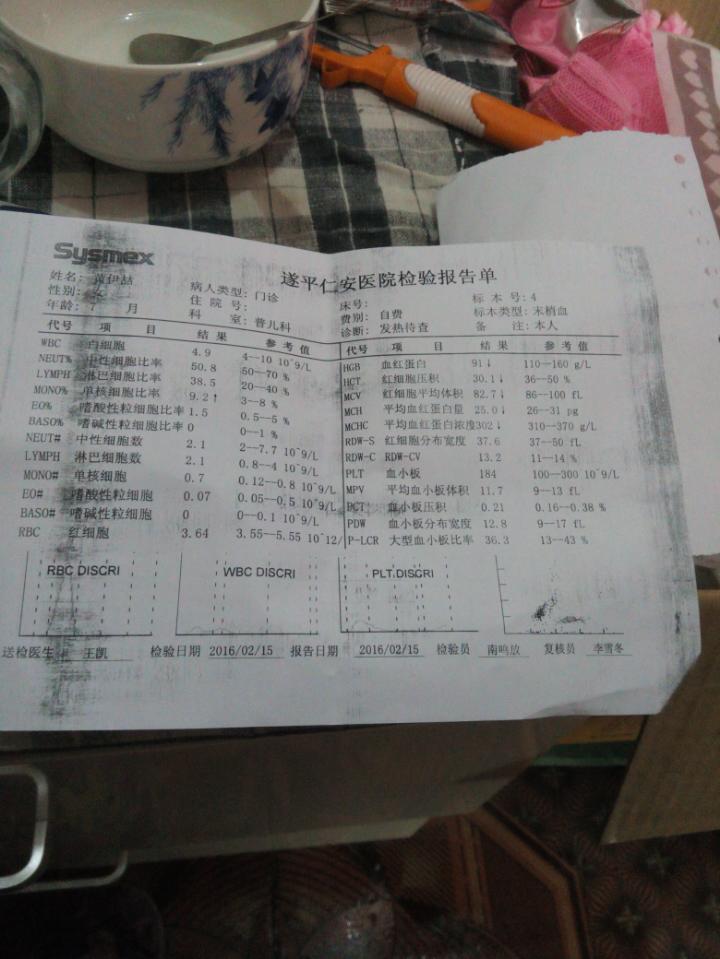 Sysmex
遂平仁安医院检验报告单
姓名: 伊喆 病人类型: 门诊 床号: 标 本 号: 4
性别: 住 院 号: 费别: 自费 标本类型: 末梢血
年龄: 7 月 科 室: 普儿科 诊断: 发热待查 备 注: 本人
代号 项 目 结 果 参 考 值 代号 项 目 结 果 参 考 值
WBC 白细胞 4.9 4--10 10^9/L HGB 血红蛋白 91↓ 110--160 g/L
NEUT% 中性细胞比率 50.8 50--70 % HCT 红细胞压积 30.1↓ 36--50 %
LYMPH 淋巴细胞比率 38.5 20--40 % MCV 红细胞平均体积 82.7↓ 86--100 fL
MONO% 单核细胞比率 9.2↑ 3--8 % MCH 平均血红蛋白量 25.0↓ 26--31 pg
EO% 嗜酸性粒细胞比率 1.5 0.5--5 % MCHC 平均血红蛋白浓度302↓ 310--370 g/L
BASO% 嗜碱性粒细胞比率 0 0--1 % RDW-S 红细胞分布宽度 37.6 37--50 fL
NEUT# 中性细胞数 2.1 2--7.7 10^9/L RDW-C RDW-CV 13.2 11--14 %
LYMPH 淋巴细胞数 2.1 0.8--4 10^9/L PLT 血小板 184 100--300 10^9/L
MONO# 单核细胞 0.7 0.12--0.8 10^9/L MPV 平均血小板体积 11.7 9--13 fL
EO# 嗜酸性粒细胞 0.07 0.05--0.5 10^9/L PCT 血小板压积 0.21 0.16--0.38 %
BASO# 嗜碱性粒细胞 0 0--0.1 10^9/L PDW 血小板分布宽度 12.8 9--17 fL
RBC 红细胞 3.64 3.55--5.55 10^12/ P-LCR 大型血小板比率 36.3 13--43 %
RBC DISCRI WBC DISCRI PLT DISCRI
送检医生 王凯 检验日期 2016/02/15 报告日期 2016/02/15 检验员 南鸣放 复核员 李雪冬